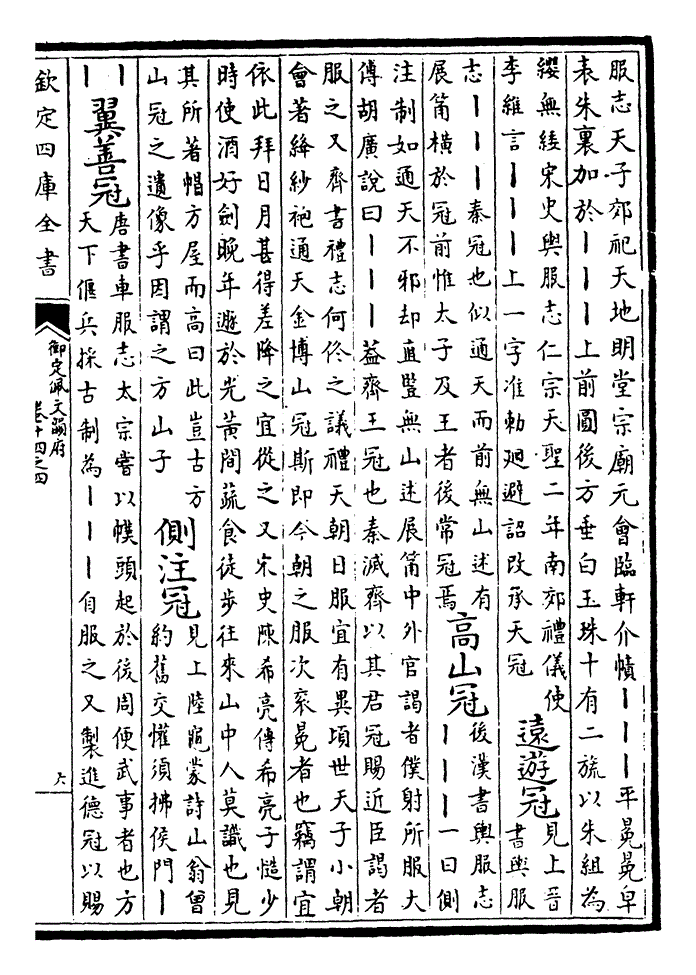 服志天子郊祀天地明堂宗廟元會臨軒介幘｜｜｜平冕冕皁
表朱裏加於｜｜｜上前圓後方垂白玉珠十有二旒以朱組為
纓無緌宋史輿服志仁宗天聖二年南郊禮儀使
李維言｜｜｜上一字准勅廻避詔改承天冠
遠遊冠
見上晉
書輿服
志｜｜｜秦冠也似通天而前無山述有
展筩横於冠前惟太子及王者後常冠焉
高山冠
後漢書輿服志
｜｜｜一曰側
注制如通天不邪却直豎無山述展筩中外官謁者僕射所服大
傅胡廣說曰｜｜｜葢齊王冠也秦滅齊以其君冠賜近臣謁者
服之又齊書禮志何佟之議禮天朝日服宜有異頃世天子小朝
會著絳紗袍通天金博山冠斯即今朝之服次衮冕者也竊謂宜
依此拜日月甚得差降之宜從之又宋史陳希亮傳希亮子慥少
時使酒好劍晚年遯於光黃間蔬食徒步往來山中人莫識也見
其所著帽方屋而高曰此豈古方
山冠之遺像乎因謂之方山子
側注冠
見上陸龜蒙詩山翁曾
約舊交懽須拂侯門｜
｜
｜
翼善冠
唐書車服志太宗嘗以幞頭起於後周便武事者也方
天下偃兵採古制為｜｜｜自服之又製進德冠以賜
欽定四庫全書
御定佩文韻府
卷十四之四
六